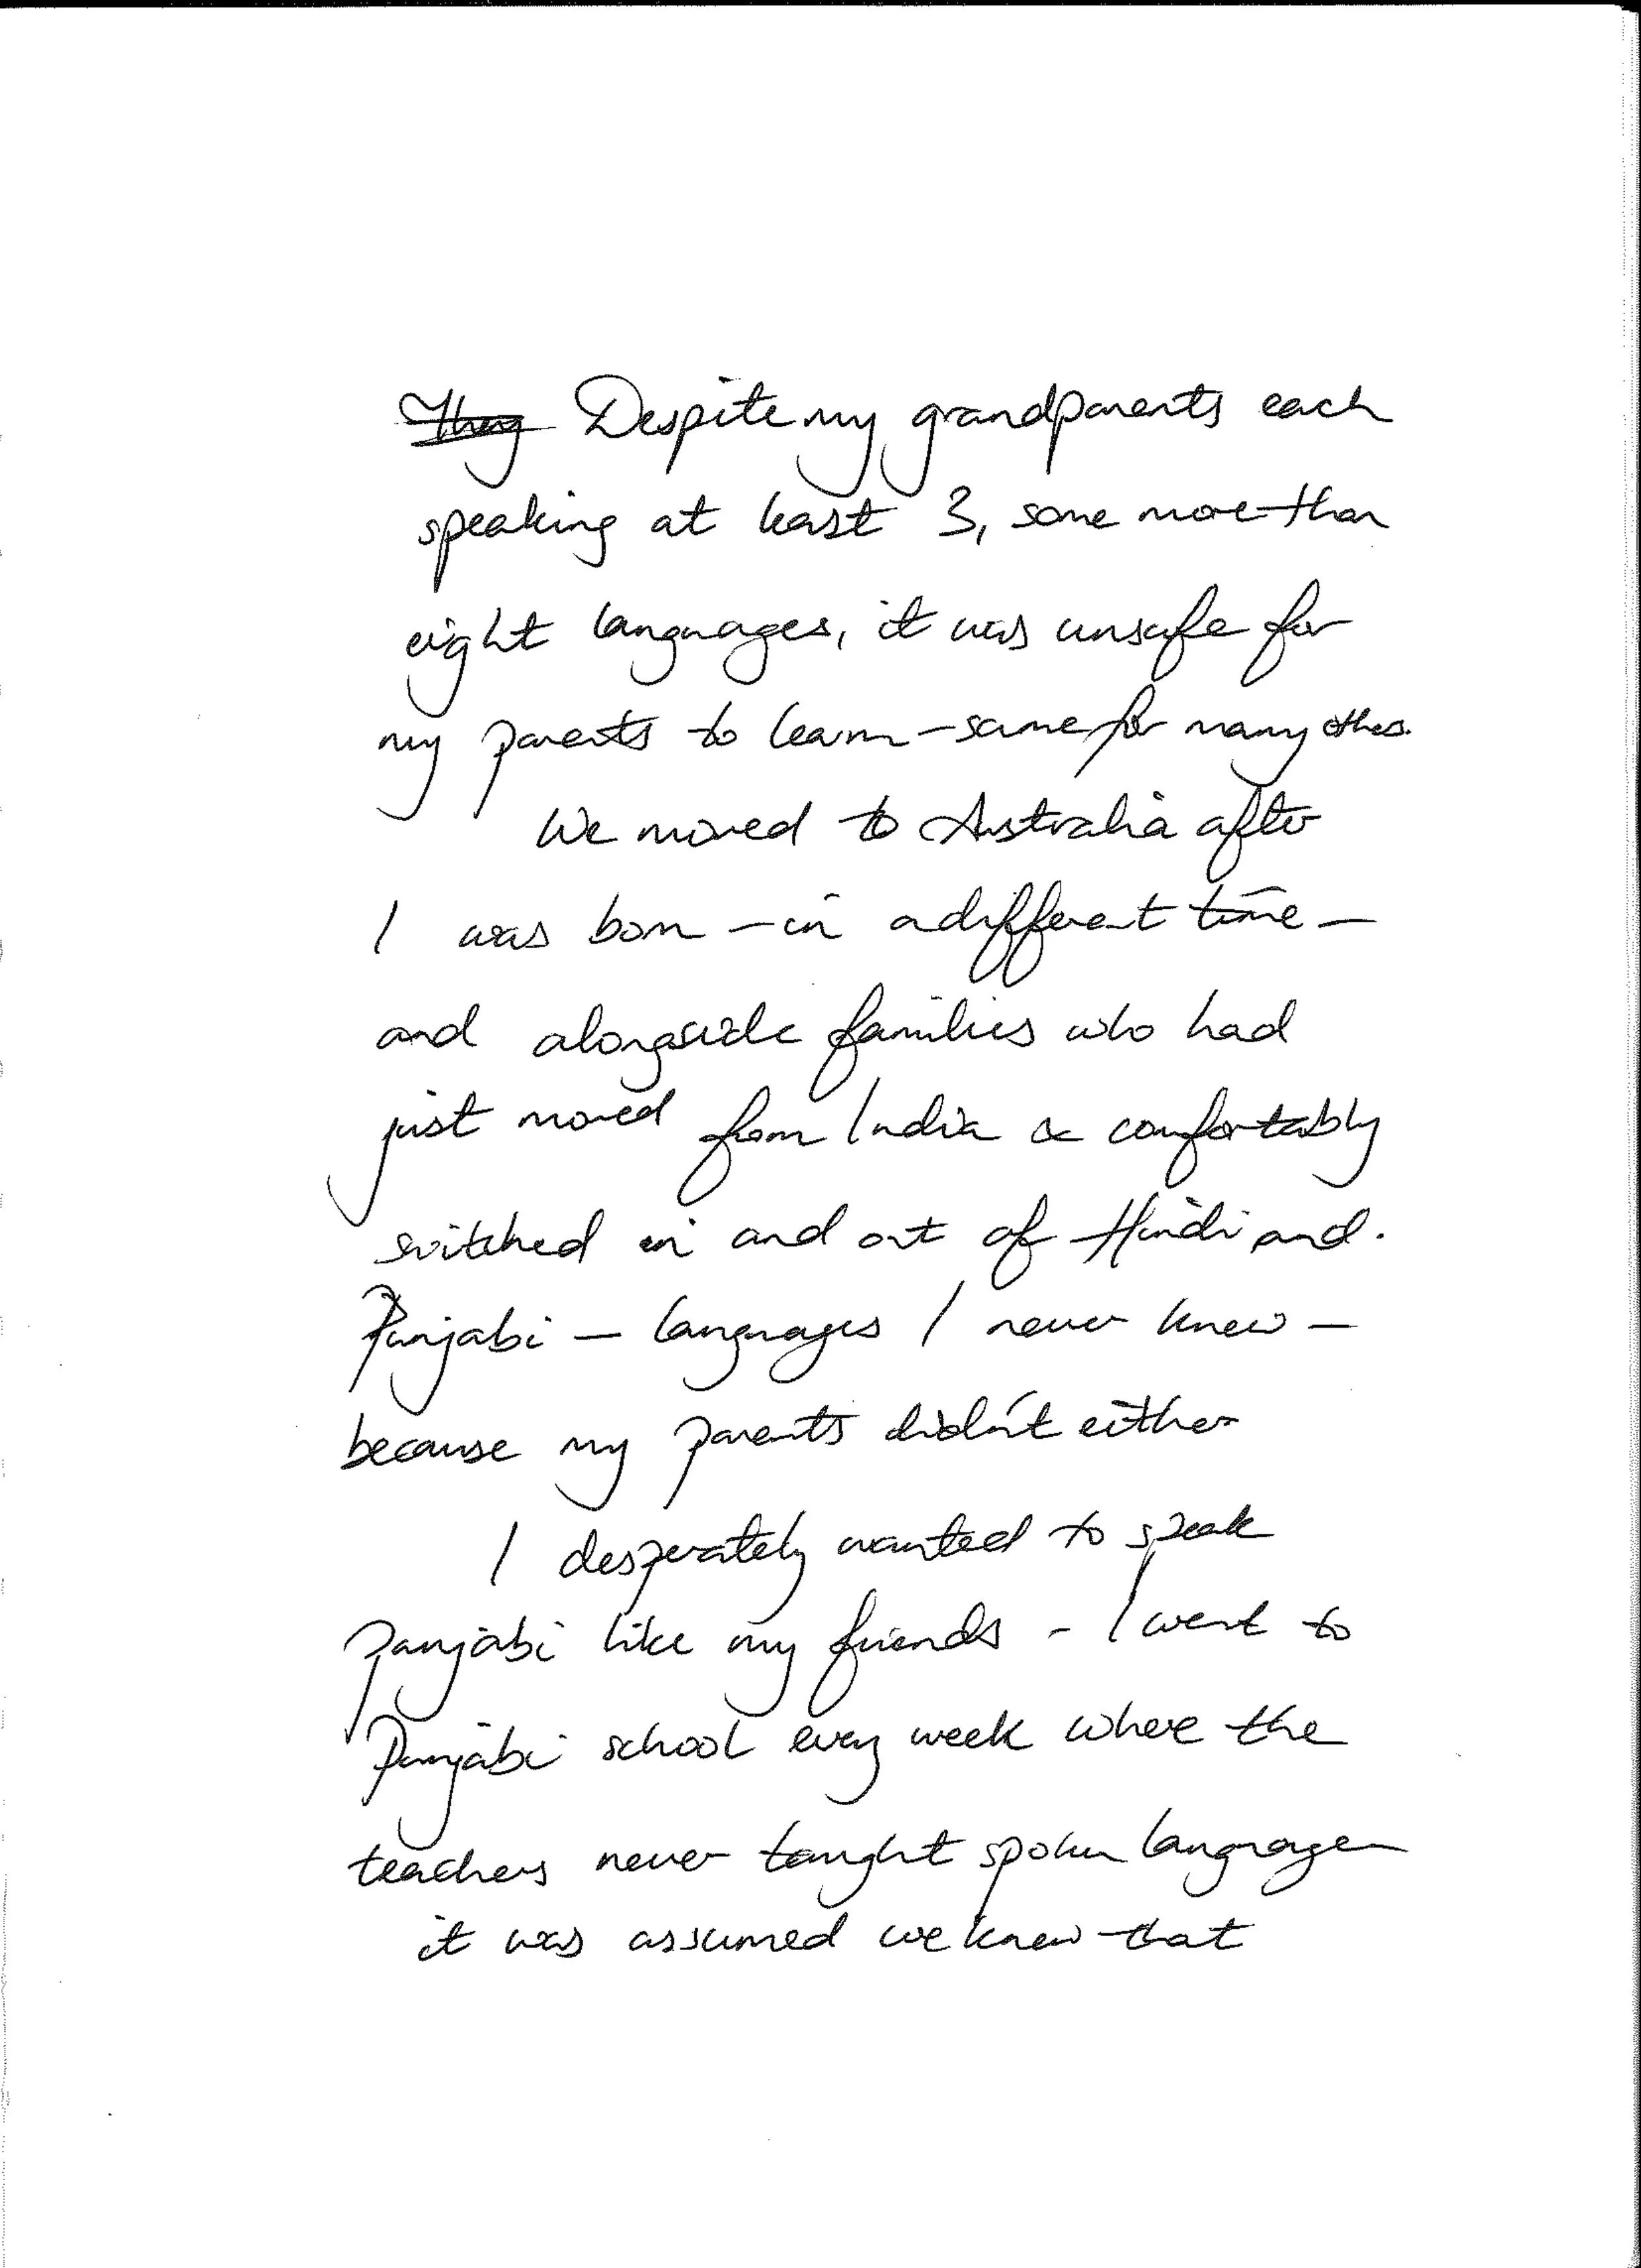 They Despite my grandparents each
speaking at least 3, some more than
eight languages, it was unsafe for
my parents to learn - same for many others.
We moved to Australia after
I was born - in a different time -
and alongside families who had
just moved from India & comfortably
switched in and out of Hindi and.
Punjabi - languages I never knew -
because my parents didn't either
I desperately wanted to speak
panjabi like my friends - I went to
Panjabi school every week where the
teachers never taught spoken language
it was assumed we knew that